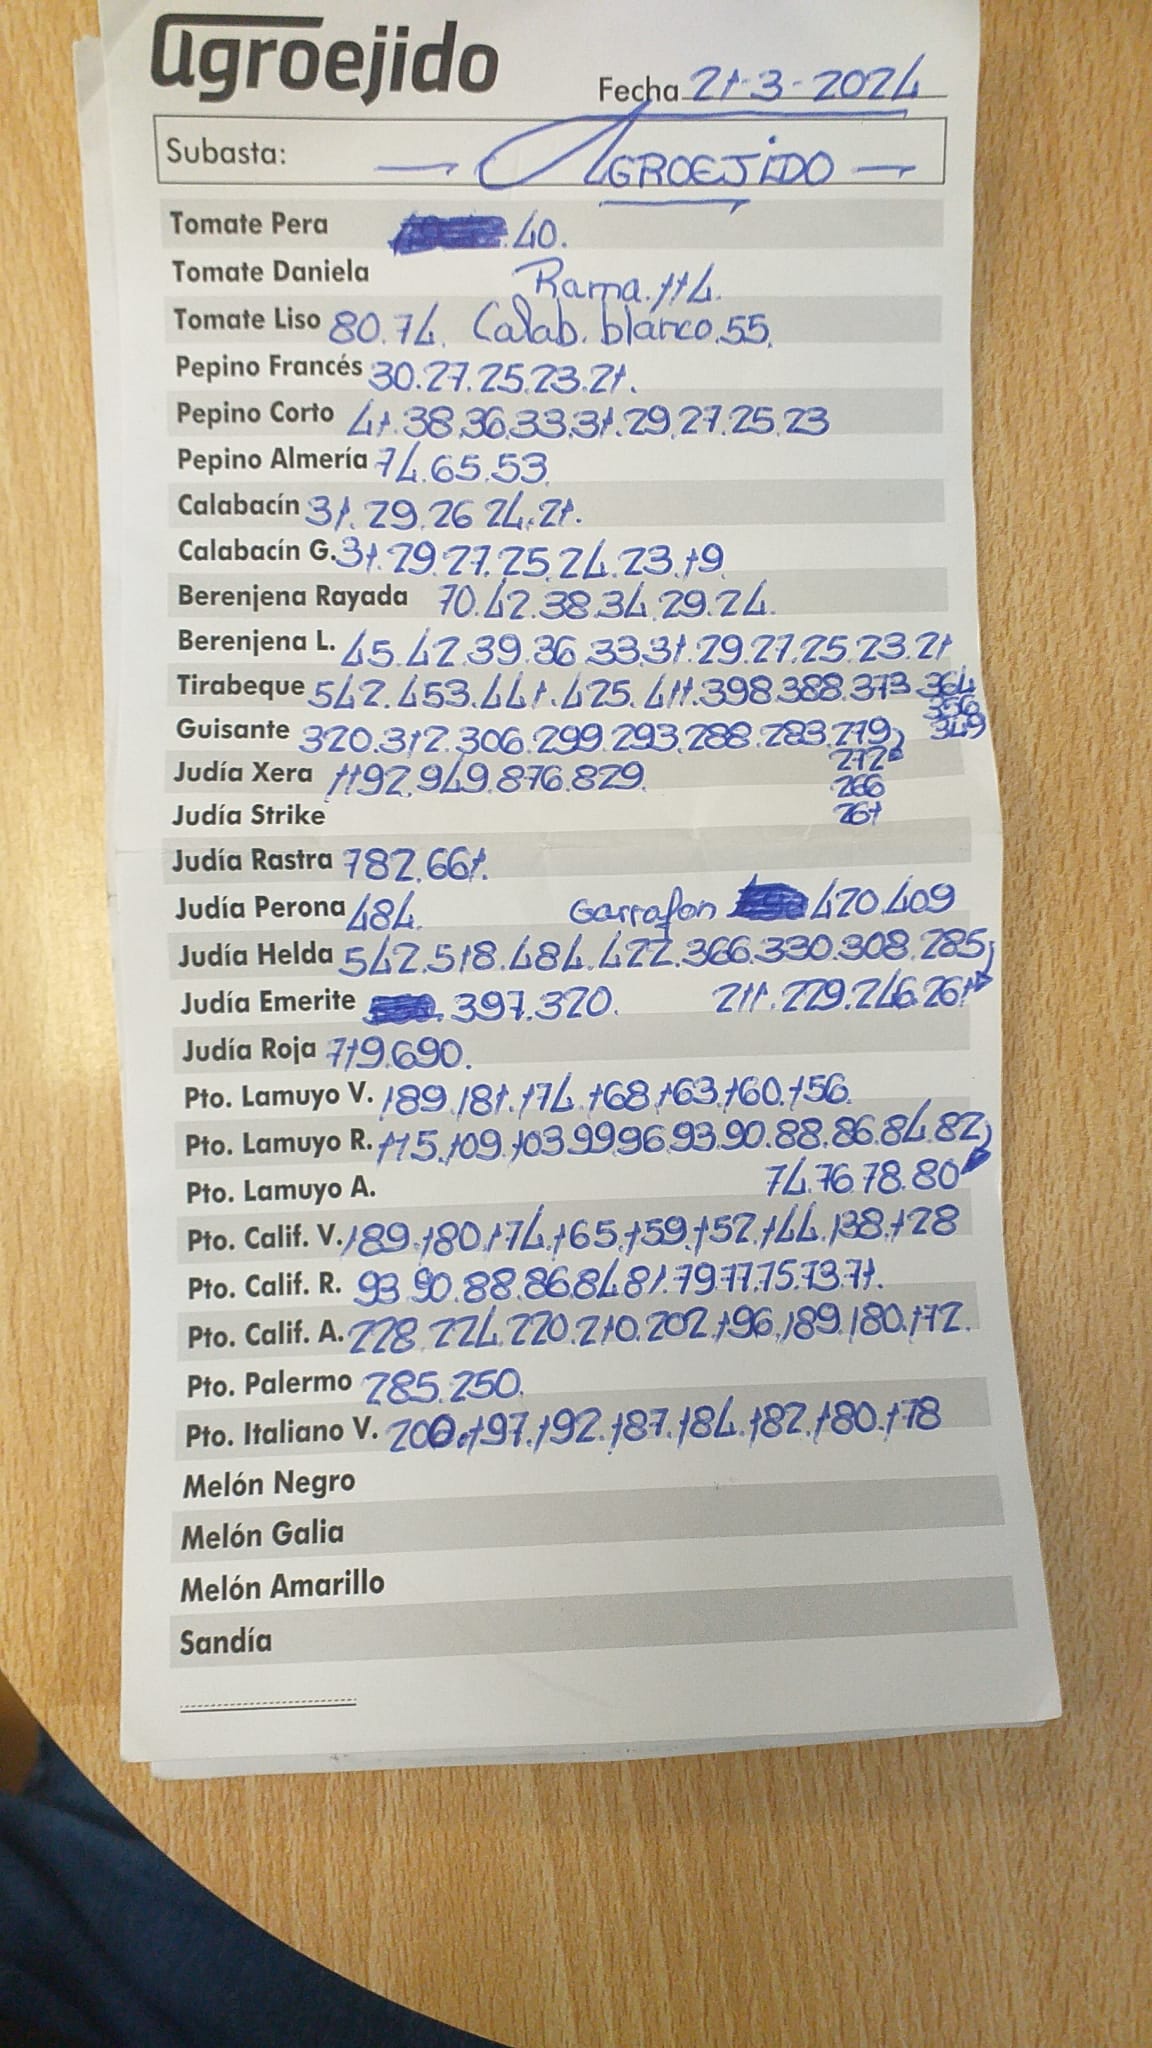 agroejido
Fecha 21-3-2024
Subasta: — AGROEJIDO —
Tomate Pera 40.
Tomate Daniela Rama.114.
Tomate Liso 80.74. Calab. blanco.55.
Pepino Francés 30.27.25.23.21.
Pepino Corto 41.38.36.33.31.29.27.25.23
Pepino Almería 74.65.53.
Calabacín 31.29.26 24.21.
Calabacín G. 31.29.27.25.24.23.19.
Berenjena Rayada 70.42.38.34.29.24.
Berenjena L. 45.42.39.36.33.31.29.27.25.23.21
Tirabeque 542.453.441.425.411.398.388.373.364
356
349
Guisante 320.312.306.299.293.288.283.279
272
266
261
Judía Xera 1192.949.876.829.
Judía Strike
Judía Rastra 782.661.
Judía Perona 484. Garrafon 420.409
Judía Helda 542.518.484.422.366.330.308.285
211.229.246.261
Judía Emerite 397.320.
Judía Roja 719.690.
Pto. Lamuyo V. 189.181.174.168.163.160.156.
Pto. Lamuyo R. 115.109.103.99.96.93.90.88.86.84.82
74.76.78.80
Pto. Lamuyo A.
Pto. Calif. V. 189.180.174.165.159.152.144.138.128
Pto. Calif. R. 93.90.88.86.84.81.79.77.75.73.71.
Pto. Calif. A. 228.224.220.210.202.196.189.180.172.
Pto. Palermo 285.250.
Pto. Italiano V. 200.197.192.187.184.182.180.178
Melón Negro
Melón Galia
Melón Amarillo
Sandía